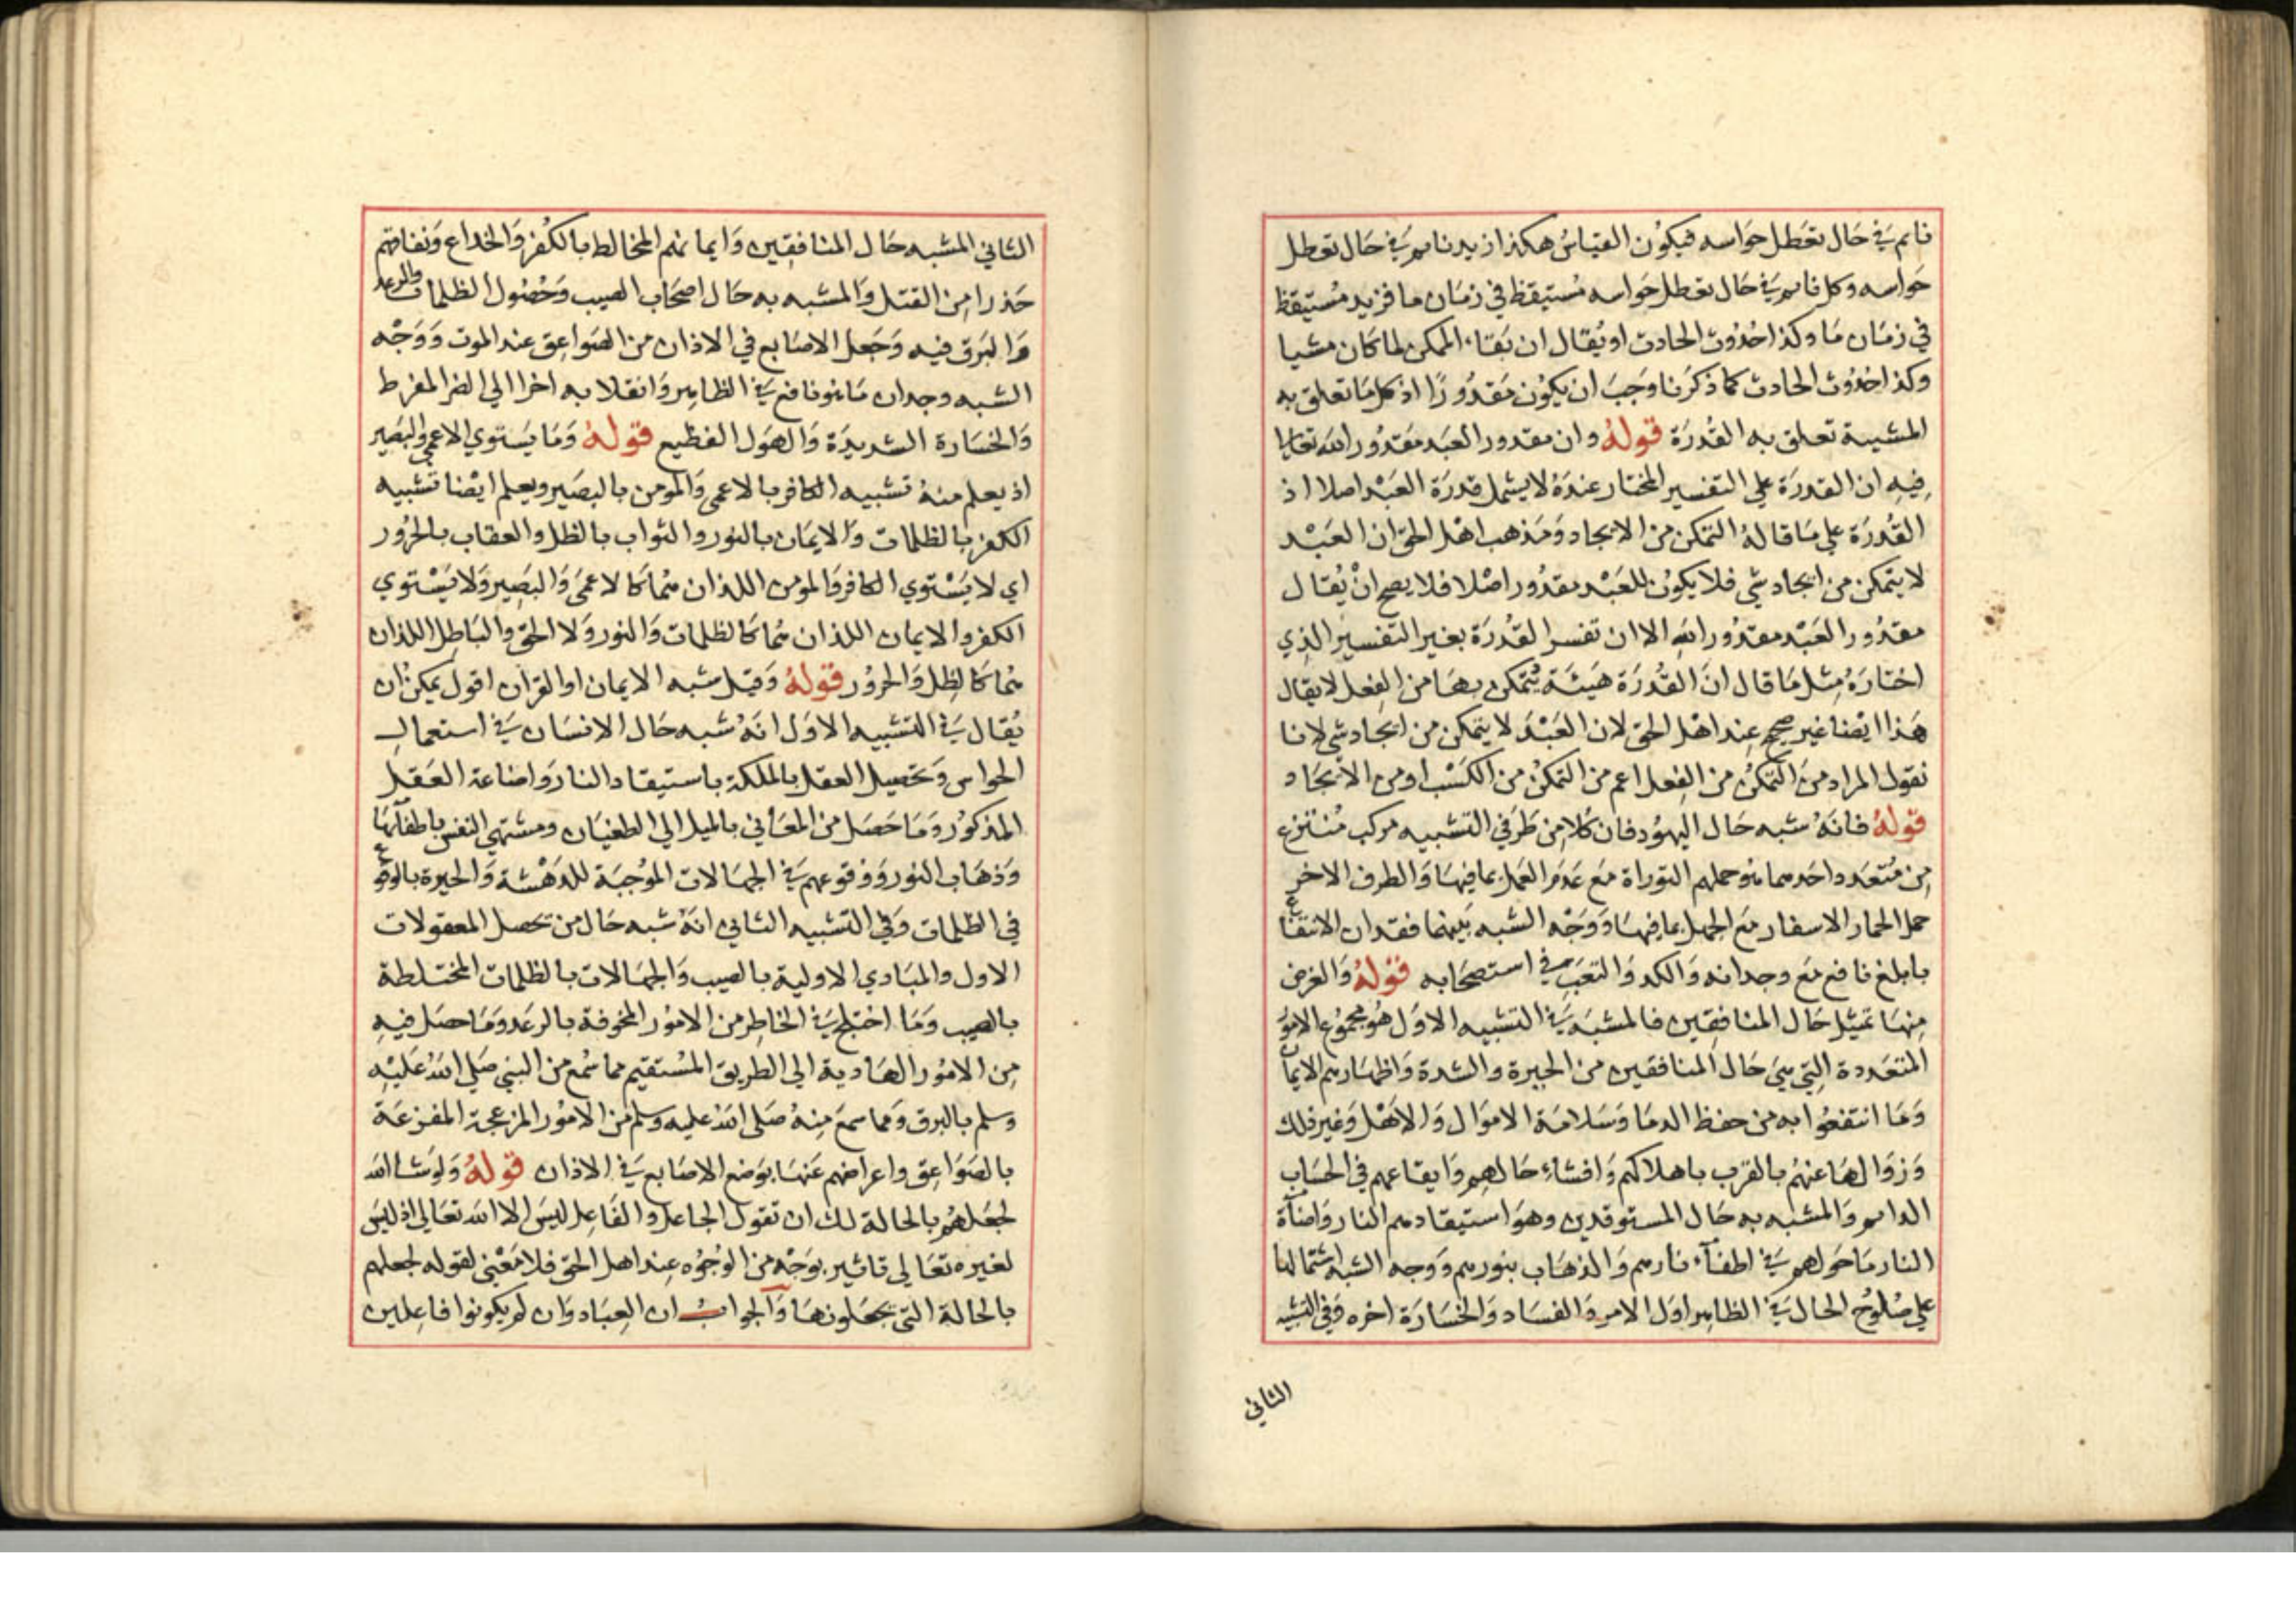 نايم في حال تعطل حواسه فيكون القياس هكذا زيد نايم في حال تعطل
حواسه وكل نايم في حال تعطل حواسه مستيقظ في زمان ما فزيد مستيقظ
في زمان ما وكذا حدوث الحادث او يقال ان بقاء الممكن لما كان مشيا
وكذا حدوث الحادث كما ذكرنا وجب ان يكون مقدورا اذ كل ما تعلق به
المشيية تعلق به القدرة قوله وان مقدور العبد مقدور الله تعالى
فيه ان القدرة علي التفسير المختار عنده لا يشمل قدرة العبد اصلا اذ
القدرة علي ما قاله التمكن من الايجاد ومذهب اهل الحق ان العبد
لا يتمكن من ايجاد شي فلا يكون للعبد مقدور اصلا فلا يصح ان يقال
مقدور العبد مقدور الله الا ان تفسر القدرة بغير التفسير الذي
اختاره مثل ما قال ان القدرة هيئة يتمكن بها من الفعل لا يقال
هذا ايضا غير صحيح عند اهل الحق لان العبد لا يتمكن من ايجاد شي لانا
نقول المراد من التمكن من الفعل اعم من التمكن من الكسب او من الايجاد
قوله فانه شبه حال اليهود فان كلا من طرفي التشبيه مركب منتزع
من متعدد احدهما هو حملهم التوراة مع عدم العمل بما فيها والطرف الاخر
حمل الحمار الاسفار مع الجهل بما فيها ووجه الشبه بينهما فقدان الانتفاع
بابلغ نافع مع وجدانه والكد والتعب في استصحابه قوله والغرض
منها تمثيل حال المنافقين فالمشبه في التشبيه الاول هو مجموع الامور
المتعددة التي هي حال المنافقين من الحيرة والشدة واظهارهم الايمان
وما انتفعوا به من حفظ الدما وسلامة الاموال والاهل وغير ذلك
وزوالها عنهم بالقرب باهلاكهم وافشاء حالهم وايقاعهم في الحساب
الدايم والمشبه به حال المستوقدين وهو استيقادهم النار واضاة
النار ما حولهم في اطفاء نارهم والذهاب بنورهم ووجه الشبه اشتمالها
علي صلوح الحال في الظاهر اول الامر والفساد والخسارة اخره وفي التشبيه
الثاني
الثاني المشبه حال المنافقين وايمانهم المخالط بالكفر والخداع ونفاقهم
حذرا من القتل والمشبه به حال اصحاب الصيب وحصول الظلمات والرعد
والبرق فيه وجعل الاصابع في الاذان من الصواعق عند الموت ووجه
الشبه وجدان ما هو نافع في الظاهر وانقلابه اخرا الي الضر المفرط
والخسارة الشديدة والهول الفظيع قوله وما يستوي الاعمى والبصير
اذ يعلم منه تشبيه الكافر بالاعمى والمومن بالبصير ويعلم ايضا تشبيه
الكفر بالظلمات والايمان بالنور والثواب بالظل والعقاب بالحرور
اي لا يستوي الكافر والمومن اللذان هما كالاعمى والبصير ولا يستوي
الكفر والايمان اللذان هما كالظلمات والنور ولا الحق والباطل اللذان
هما كالظل والحرور قوله وقيل شبه الايمان او القران اقول يمكن ان
يقال في التشبيه الاول انه شبه حال الانسان في استعمال
الحواس وتحصيل العقل بالملكة باستيقاد النار واضاعة العقل
المذكور وما حصل من المعاني بالميل الي الطغيان ومشتهي النفس باطفائها
وذهاب النور ووقوعهم في الجهالات الموجبة للدهشة والحيرة بالوقوع
في الظلمات وفي التشبيه الثاني انه شبه حال من تحصل المعقولات
الاول والمبادي الاولية بالصيب والجهالات بالظلمات المختلطة
بالصيب وما اختلج في الخاطر من الامور المخوفة بالرعد وما حصل فيه
من الامور الهادية الي الطريق المستقيم مما سمع من النبي صلي الله عليه
وسلم بالبرق ومما سمع منه صلى الله عليه وسلم من الامور المزعجة المفزعة
بالصواعق واعراضهم عنها بوضع الاصابع في الاذان قوله ولو شا الله
لجعلهم بالحالة لك ان تقول الجاعل والفاعل ليس الا الله تعالي اذ ليس
لغيره تعالي تاثير بوجه من الوجوه عند اهل الحق فلا معني لقوله لجعلهم
بالحالة التي يجعلونها والجواب ان العباد وان لم يكونوا فاعلين